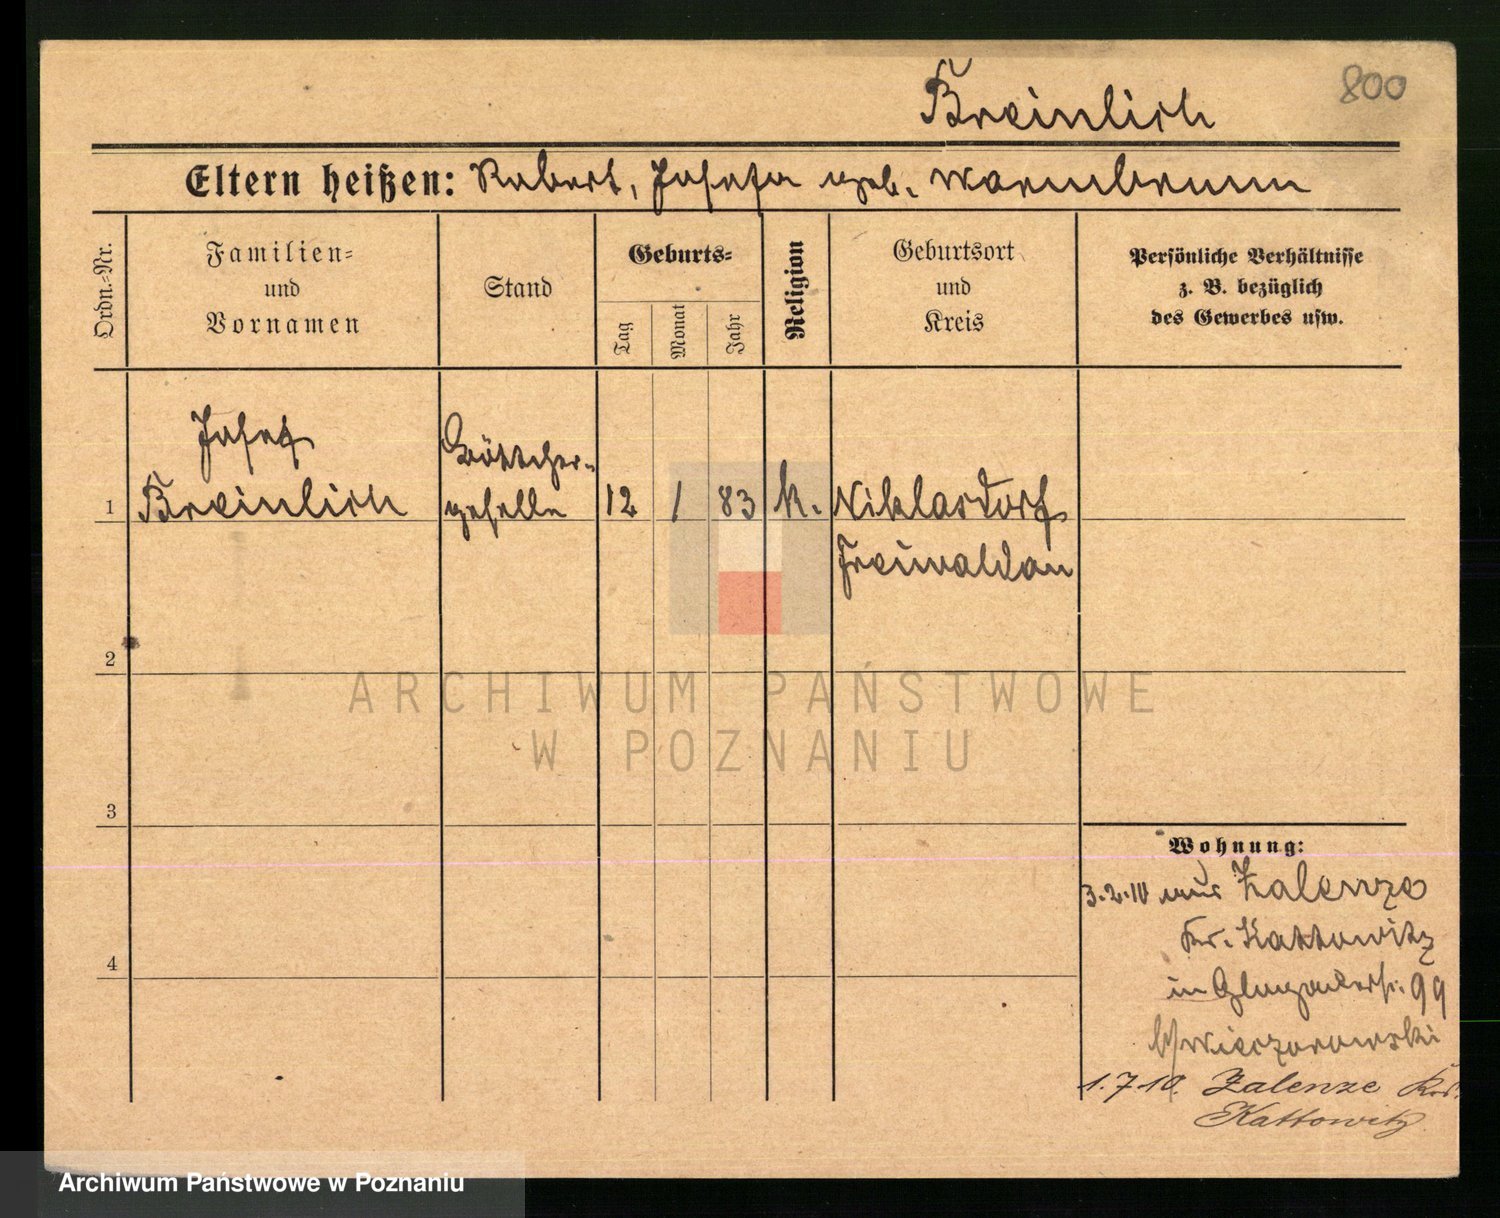 800
Breinlich
Eltern heißen: Robert, Josefa geb. Warmbrunn
Ordn.-Nr.
Familien-
und
Vornamen
Stand
Geburts-
Tag
Monat
Jahr
Religion
Geburtsort
und
Kreis
Persönliche Verhältnisse
z. B. bezüglich
des Gewerbes usw.
Josef
Böttcher-
1 Breinlich geselle 12 1 83 k. Niklasdorf
Freiwaldau
2
ARCHIWUM PAŃSTWOWE
W POZNANIU
3
Wohnung:
3.2.10 aus Zalenze
Kr. Kattowitz
4
in Glogauerstr. 99
b/ Wieczorowski
1.7.10. Zalenze Krs.
Kattowitz
Archiwum Państwowe w Poznaniu